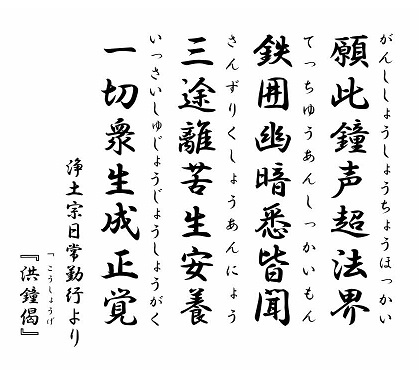 がんししょうしょうちょうほっかい
願此鐘声超法界
てっちゅうあんしっかいもん
鉄囲幽暗悉皆聞
さんずりくしょうあんにょう
三途離苦生安養
いっさいしゅじょうじょうしょうがく
一切衆生成正覚
浄土宗日常勤行より
こうしょうげ
『洪鐘偈』